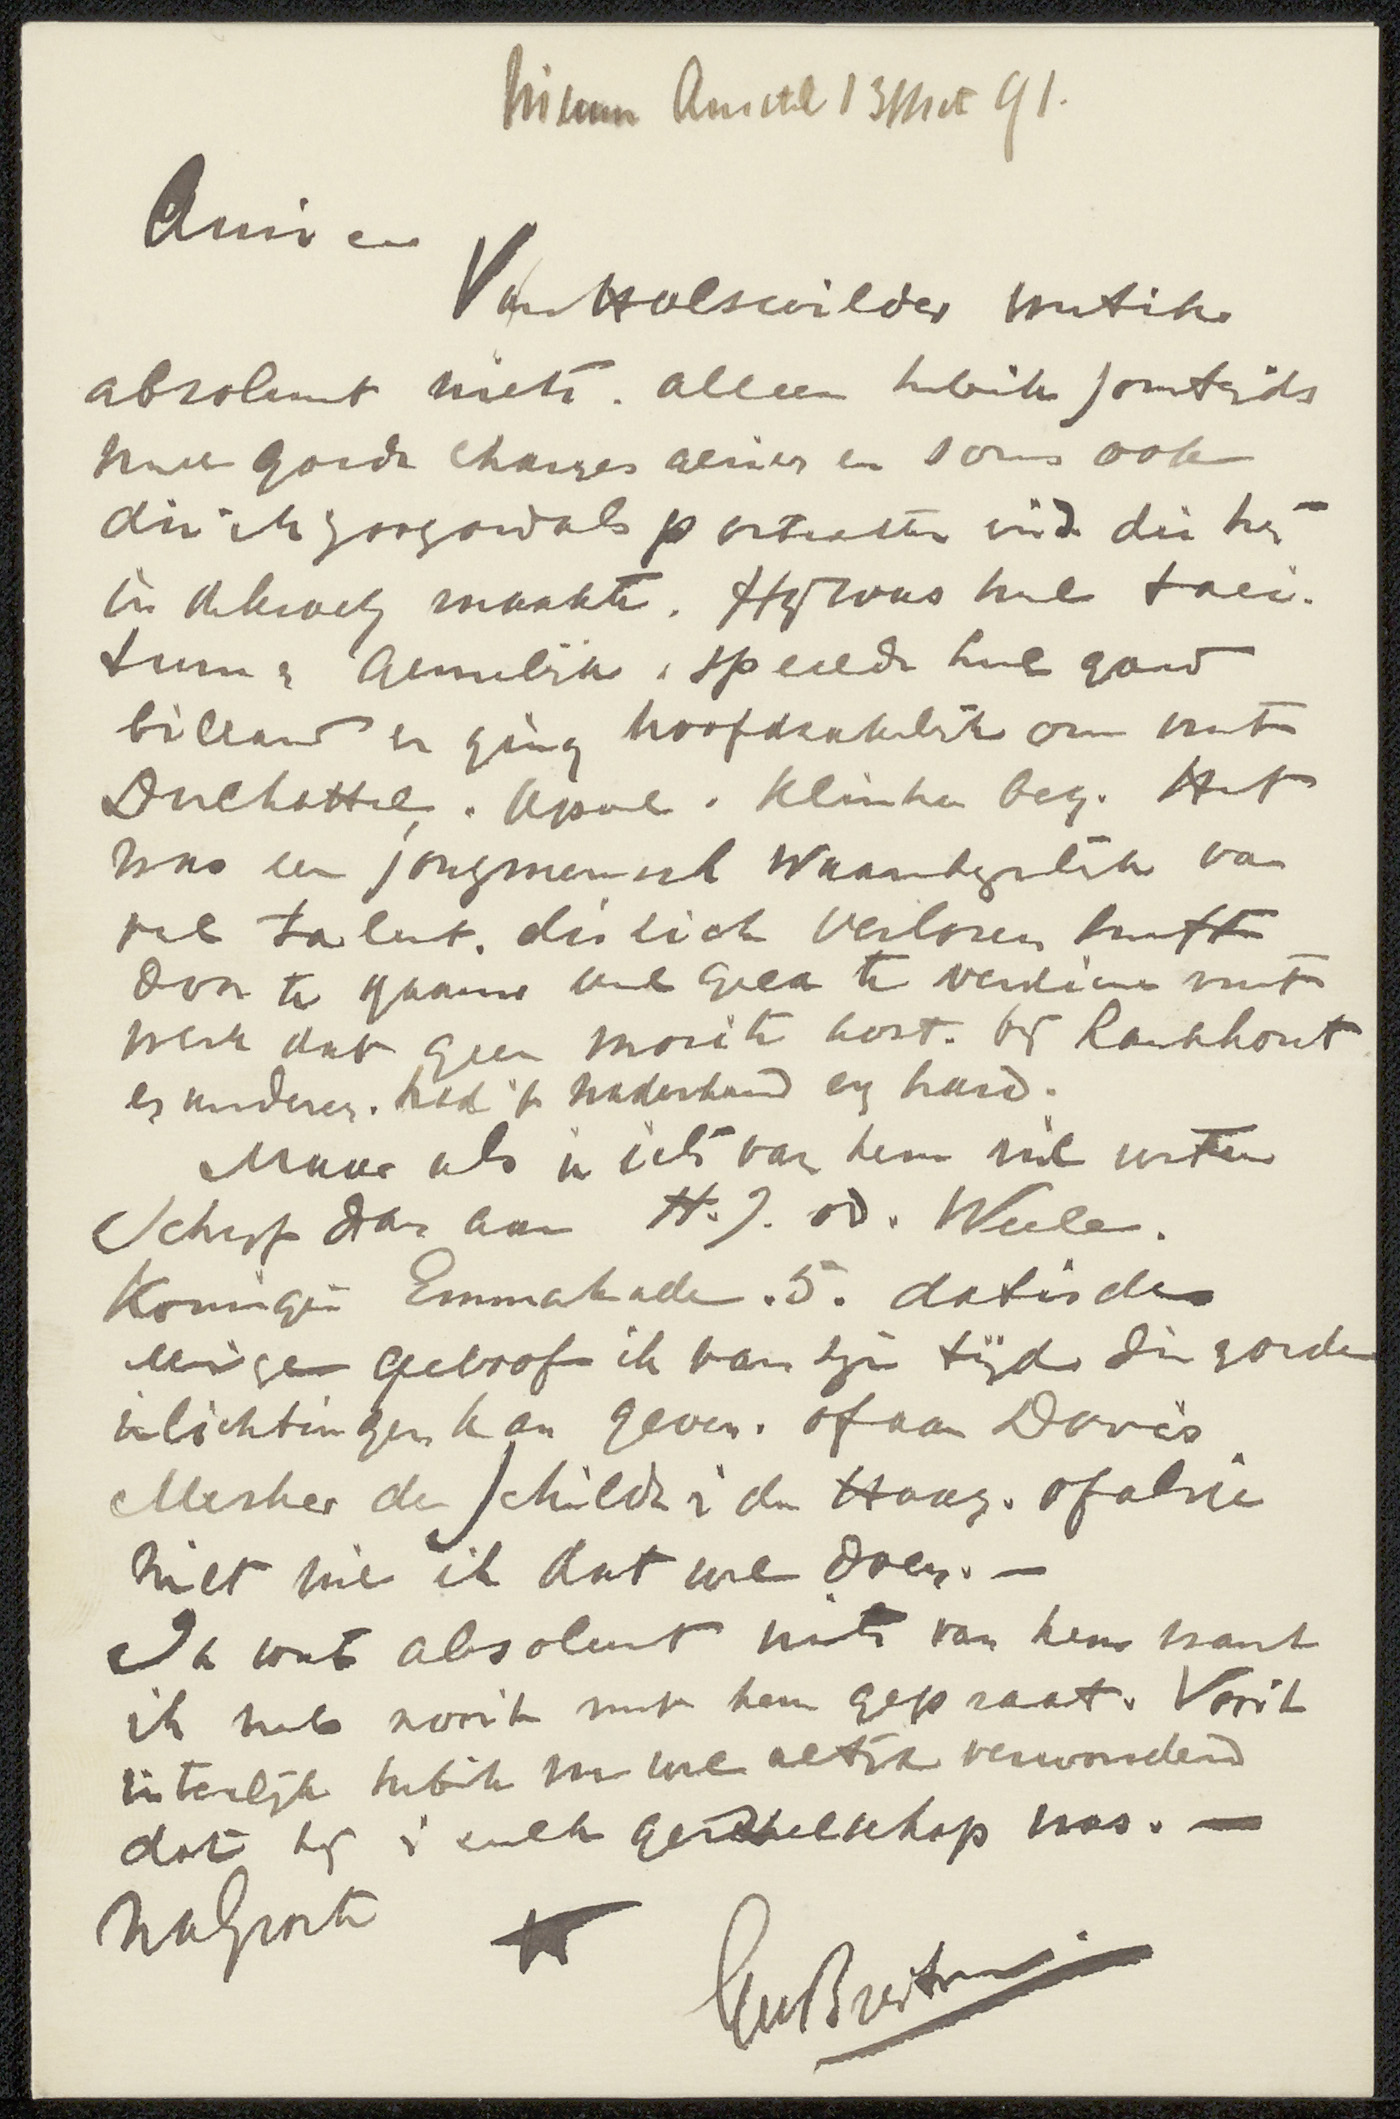 Nieuwer Amstel 13 Oct 91.
Amice
Van Holswilder weet ik
absoluut niets. alleen heb ik somtijds
heele goede charges gezien en soms ook
die ik zoo goed als portretten vind die hij
in de kroeg maakte. Hij was heel taci-
turn & gemelijk, speelde heel goed
billard en ging hoofdzakelijk om met
Duchattel, Apol, Klinken berg. Het
was een jongmensch waarschijnlijk van
veel talent, die zich verloren heeft
door te gauw veel geld te verdienen met
werk dat geen moeite kost. bij Lankhout
en anderen. heb ik naderhand eg hoord.
Maar als je iets van hem wil weten
Schrijf dan aan H. J. vd. Weele.
Koningin Emmakade. 5. dat is de
eenige geloof ik van zijn tijd die goede
inlichtingen kan geven. of aan Dovis
Mesker de Schilder i den Haag. of als je
niet wil ik dat wel doen. —
Ik weet absoluut niets van hem want
ik heb nooit met hem gepraat. Voorts
uiterlijk heb ik me wel altijd verwonderd
dat hij i zulk gezelschap was. —
na Groete
GHBreitner